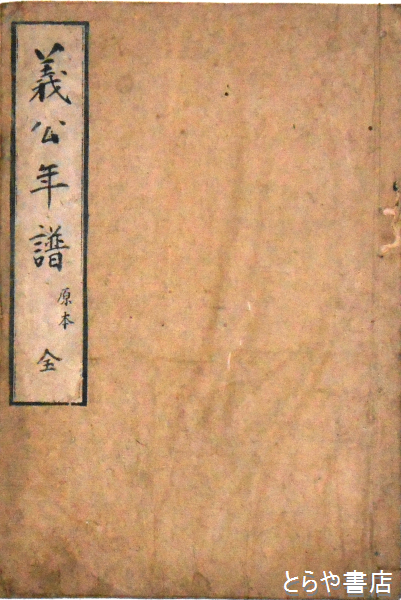 義公年譜 原本 全
とらや書店